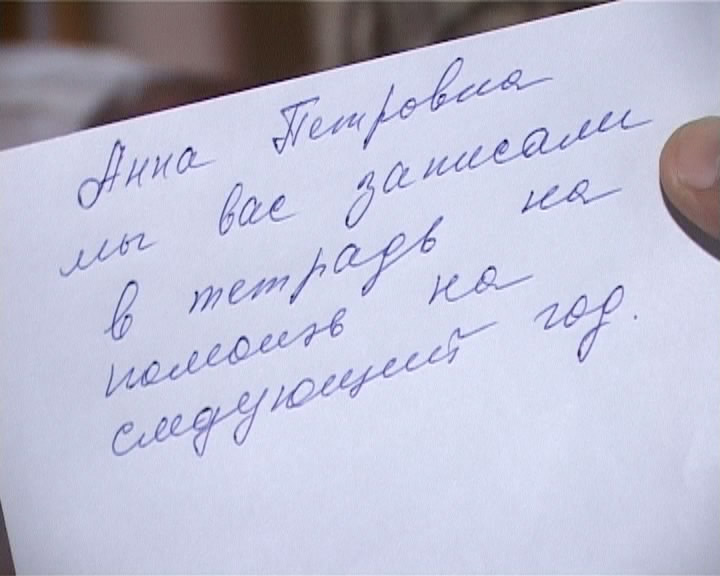 Анна Петровна
мы вас записали
в тетрадь на
помощь на
следующий год.